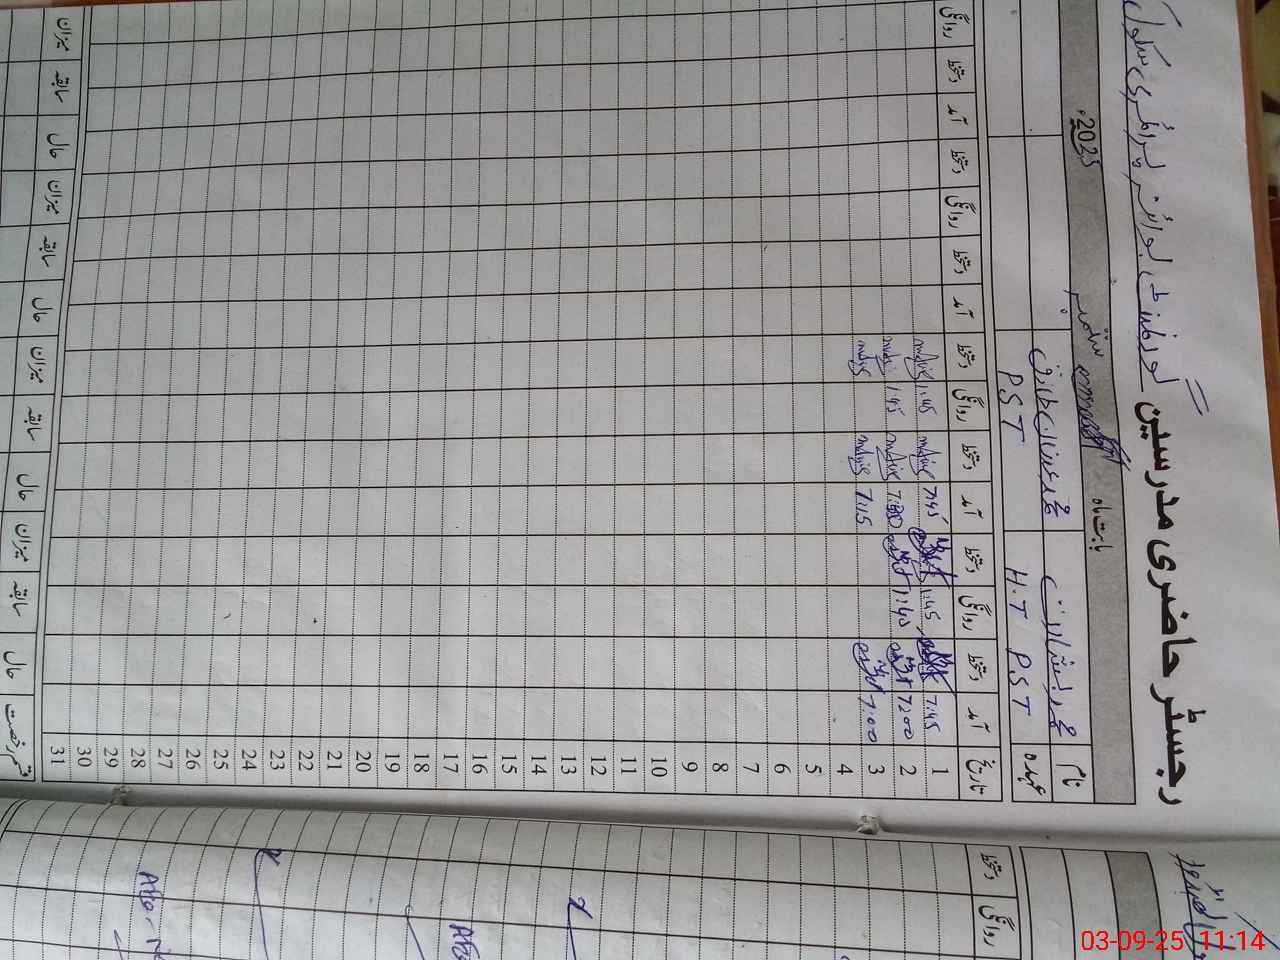 رجسٹر حاضری مدرسین گورنمنٹ بوائز پرائمری سکول
بابت ماہ ستمبر 2025ء
نام محمد بشارت محمد عدنان طارق
عہدہ H.T PST PST
تاریخ آمد دستخط روانگی دستخط آمد دستخط روانگی دستخط آمد دستخط روانگی دستخط آمد دستخط روانگی
1 7:45 1:45 7:45 1:45
2 7:00 1:45 7:30 1:45
3 7:00 7:15
4
5
6
7
8
9
10
11
12
13
14
15
16
17
18
19
20
21
22
23
24
25
26
27
28
29
30
31
قسم رخصت حال سابقہ میزان حال سابقہ میزان حال سابقہ میزان حال سابقہ میزان
دستخط
روانگی
03-09-25 11:14